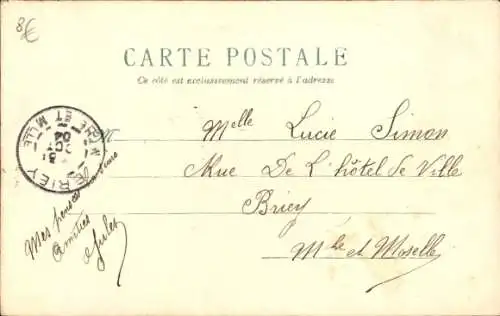 8€
CARTE POSTALE
Ce côté est exclusivement réservé à l'adresse
Melle Lucie Simon
Rue De L'hôtel de Ville
Briey
Mthe et Moselle
BRIEY
31
OCT
04
MTHE ET MLLE
Mes pensées
Amitiés
Jules